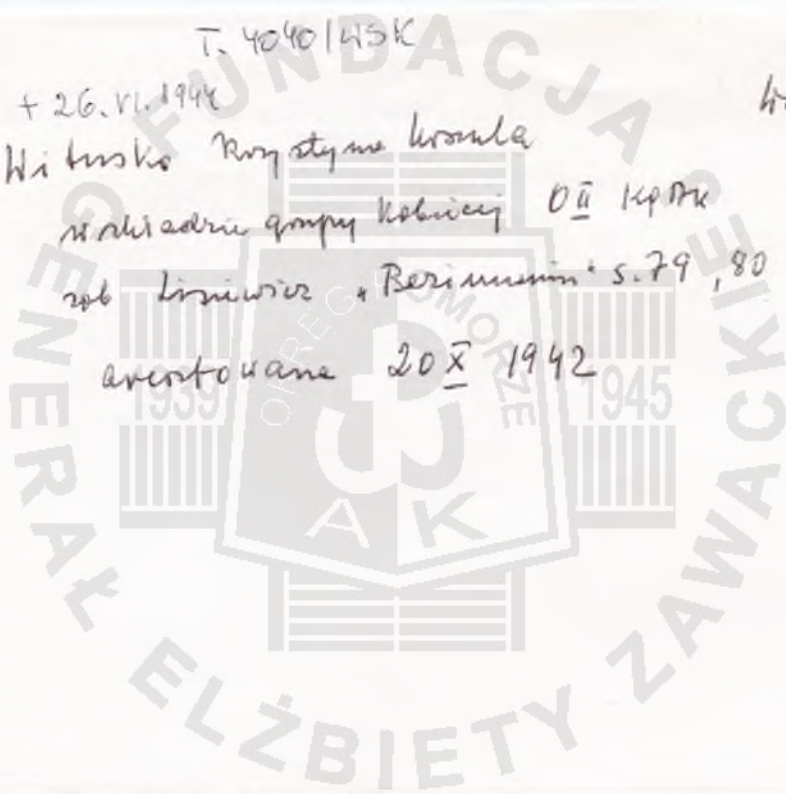 T. 4040/WSK
+ 26.VI.1944
Wituska Krystyna Urszula
w składzie grupy kobiecej O II KG AK
zob Lisiewicz "Bezimienni" s. 79, 80
aresztowana 20 X 1942
FUNDACJA GENERAŁ ELŻBIETY ZAWACKIEJ
OKRĘG POMORZE
1939 1945
AK